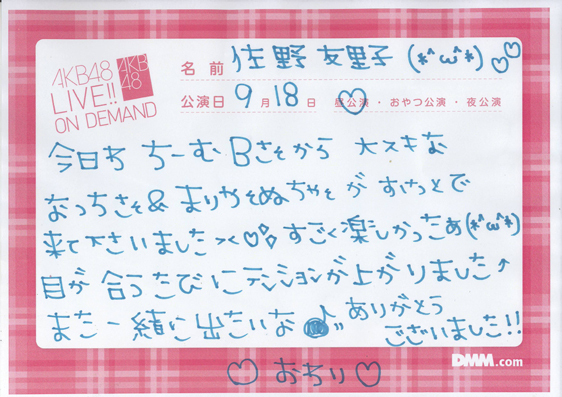 AKB48
LIVE!!
ON DEMAND
AKB
48
名前 佐野友里子 (*^ω^*)♡♡
公演日 9月18日 昼公演・おやつ公演・夜公演
今日わ ちーむBさそから 大スキな
なっちさそ&まりやそぬちゃそが すけっとで
来て下さいました><♡ すごく楽しかったあ(*^ω^*)
目が合うたびにテンションが上がりました↑
また一緒に出たいな ありがとう
ございました!!
♡おちり♡
DMM.com